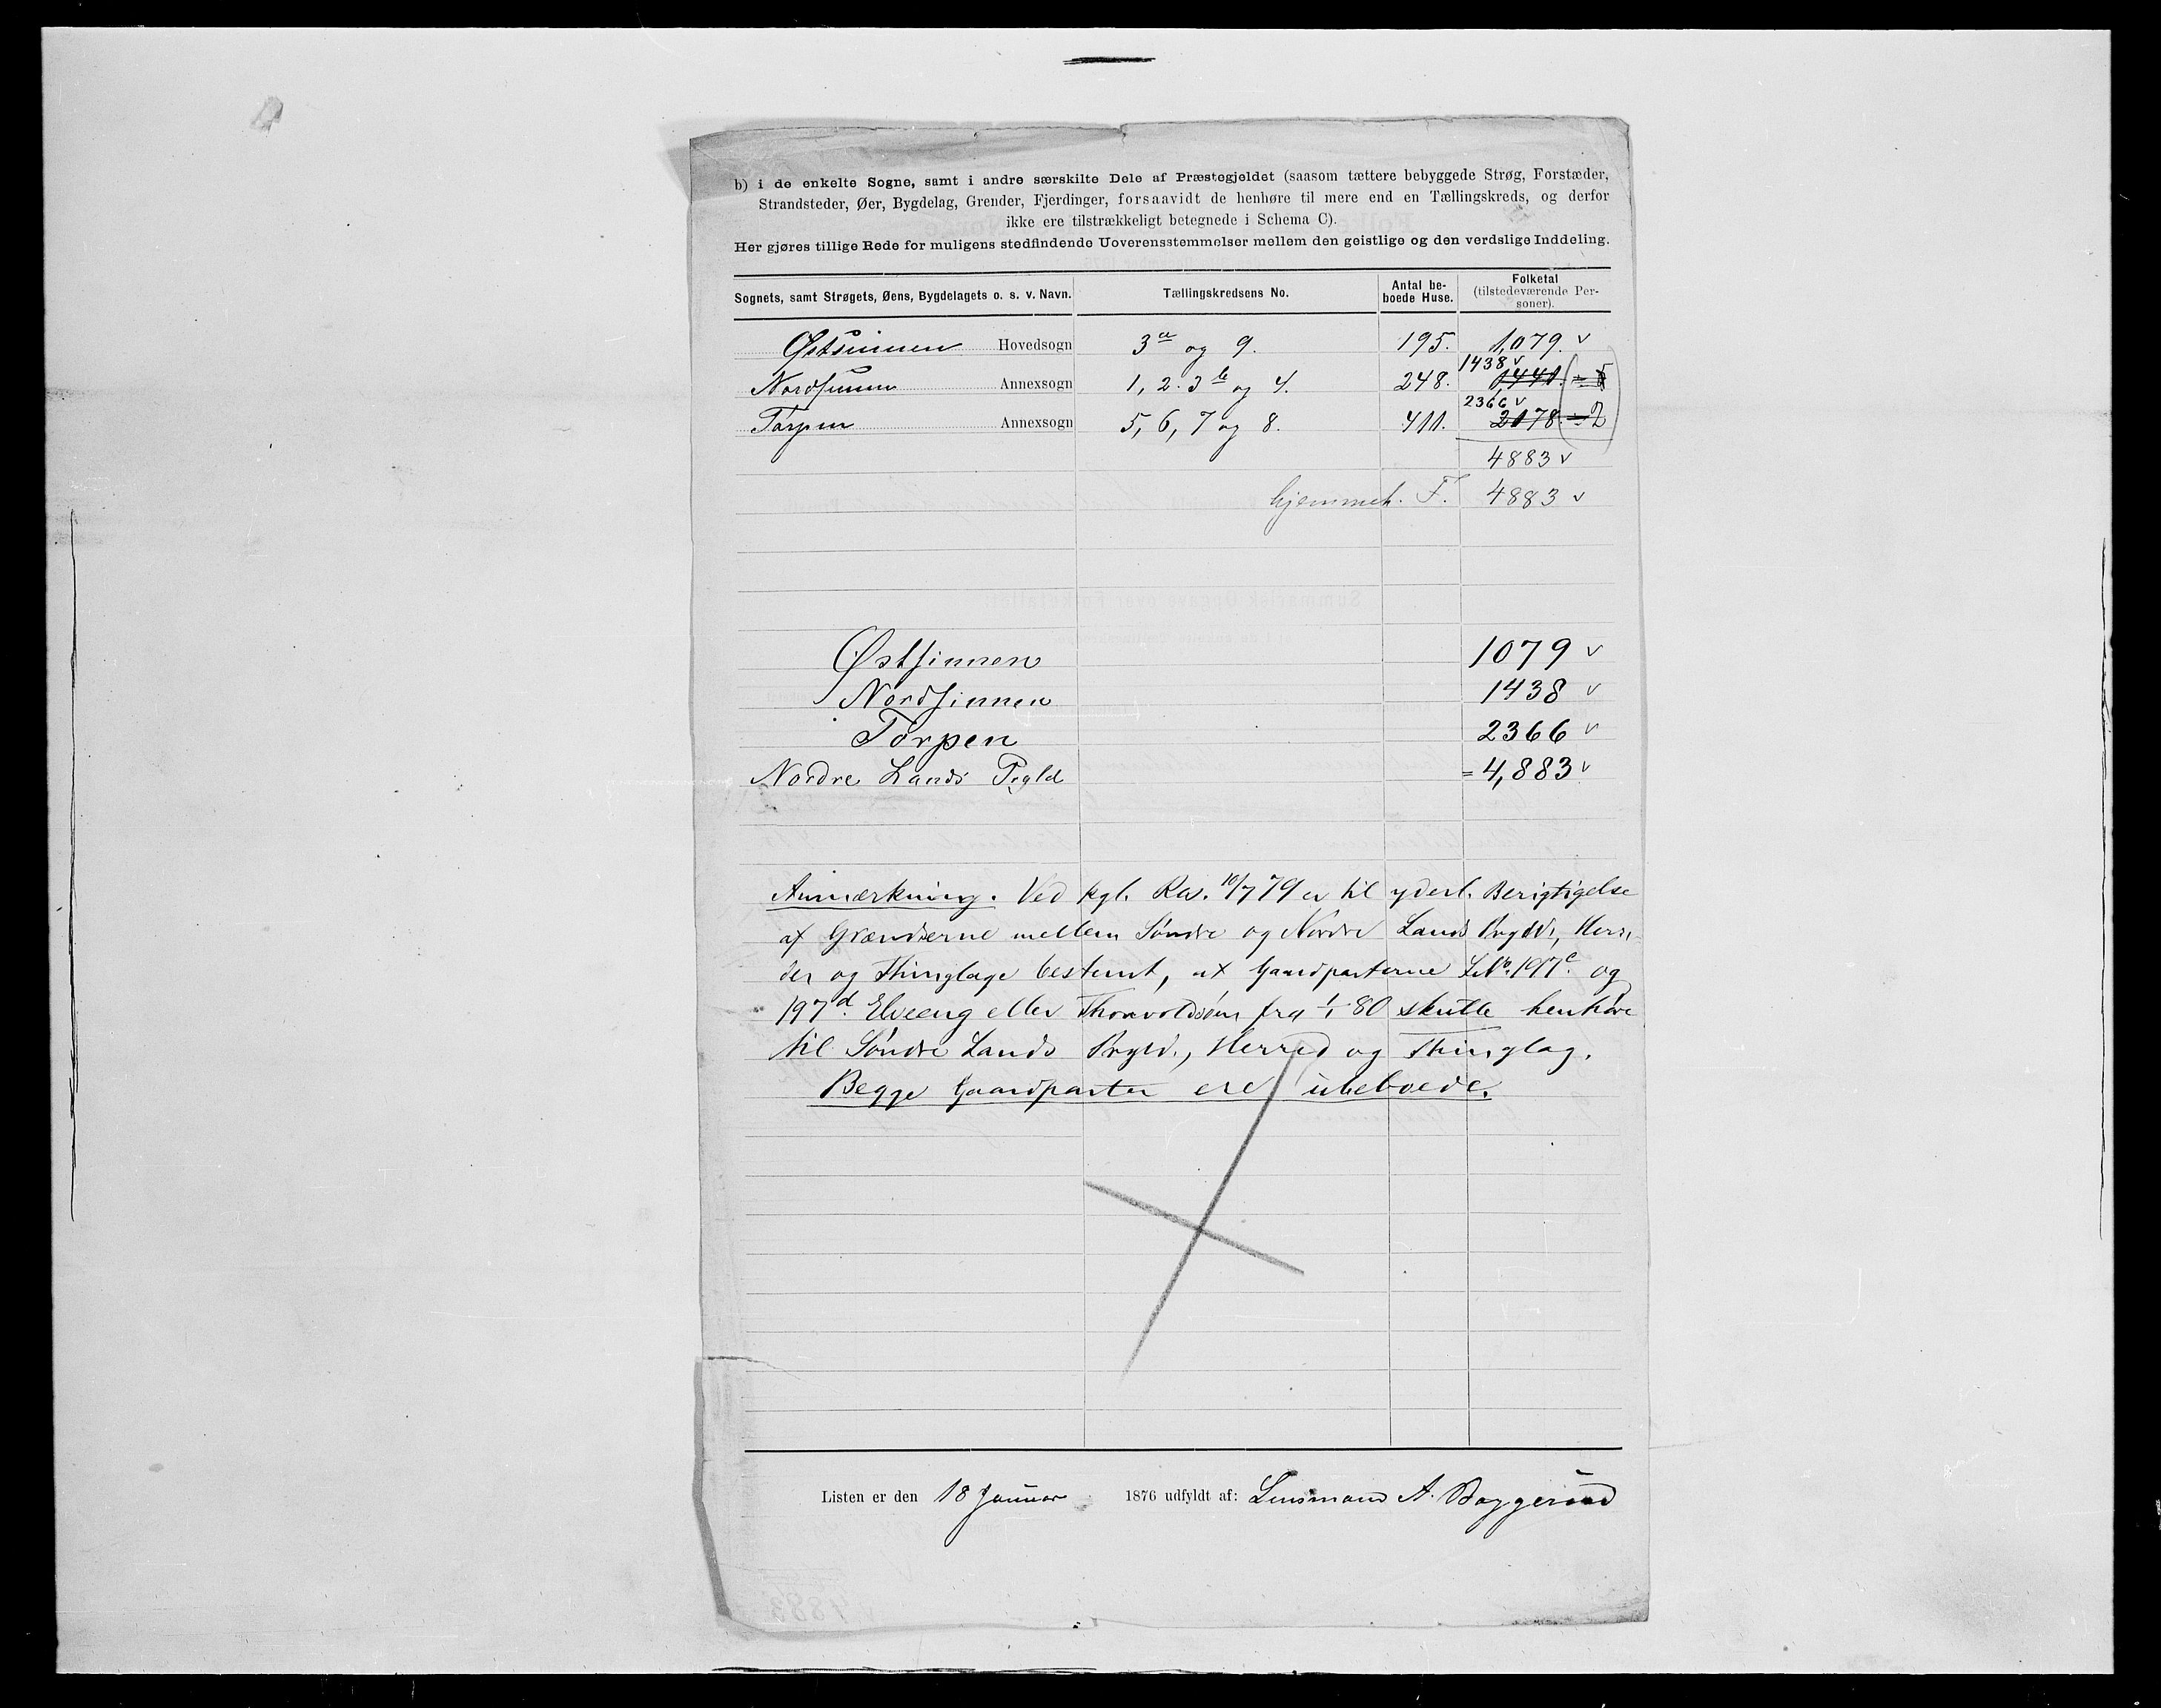 b) i de enkelte Sogne, samt i andre særskilte Dele af Præstegjeldet (saasom tættere bebyggede Strøg, Forstæder,
Strandsteder, Øer, Bygdelag, Grender, Fjerdinger, forsaavidt de henhøre til mere end en Tællingskreds, og derfor
ikke ere tilstrækkeligt betegnede i Schema C).
Her gjøres tillige Rede for muligens stedfindende Uoverensstemmelser mellem den geistlige og den verdslige Inddeling.
Sognets, samt Strøgets, Øens, Bygdelagets o. s. v. Navn. Tællingskredsens No. Antal beboede Huse. Folketal (tilstedeværende Personer).
Østsinnen Hovedsogn 3a og 9. 195. 1,079. v
1438 v
Nordsinnen Annexsogn 1, 2. 3b og 4. 248. 1,441.
2366 v
Torpen Annexsogn 5, 6, 7 og 8. 411. ÷ 2
4883 v
hjemmeh. F. 4883 v
Østsinnen 1079 v
Nordsinnen 1438 v
Torpen 2366 v
Nordre Lands Pgld = 4,883 v
Anmærkning. Ved kgl. Res. 10/7 79 er til yderl. Berigtigelse
af Grændserne mellem Søndre og Nordre Lands Prgld., Herre-
der og Thinglage bestemt, at Gaardparterne LNo. 197c. og
197d. Elveeng eller fra 1/1 80 skulle henhøre
til Søndre Lands Prgld., Herred og Thinglag.
Begge Gaardparter ere ubeboede.
Listen er den 18 Januar 1876 udfyldt af: Lensmand A. Baggerud